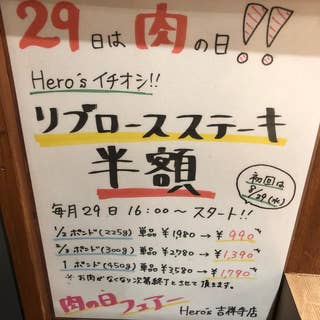 29日は肉の日!!
Hero's イチオシ!!
リブロースステーキ
半額
初回は
8/29(水)
毎月29日 16:00～スタート!!
1/2 ポンド(225g) 単品 ¥1,980 → ¥990
2/3 ポンド(300g) 単品 ¥2,780 → ¥1,390
1 ポンド(450g) 単品 ¥3,580 → ¥1,790
※お肉がなくなり次第終了とさせて頂きます。
肉の日フェアー
Hero's 吉祥寺店